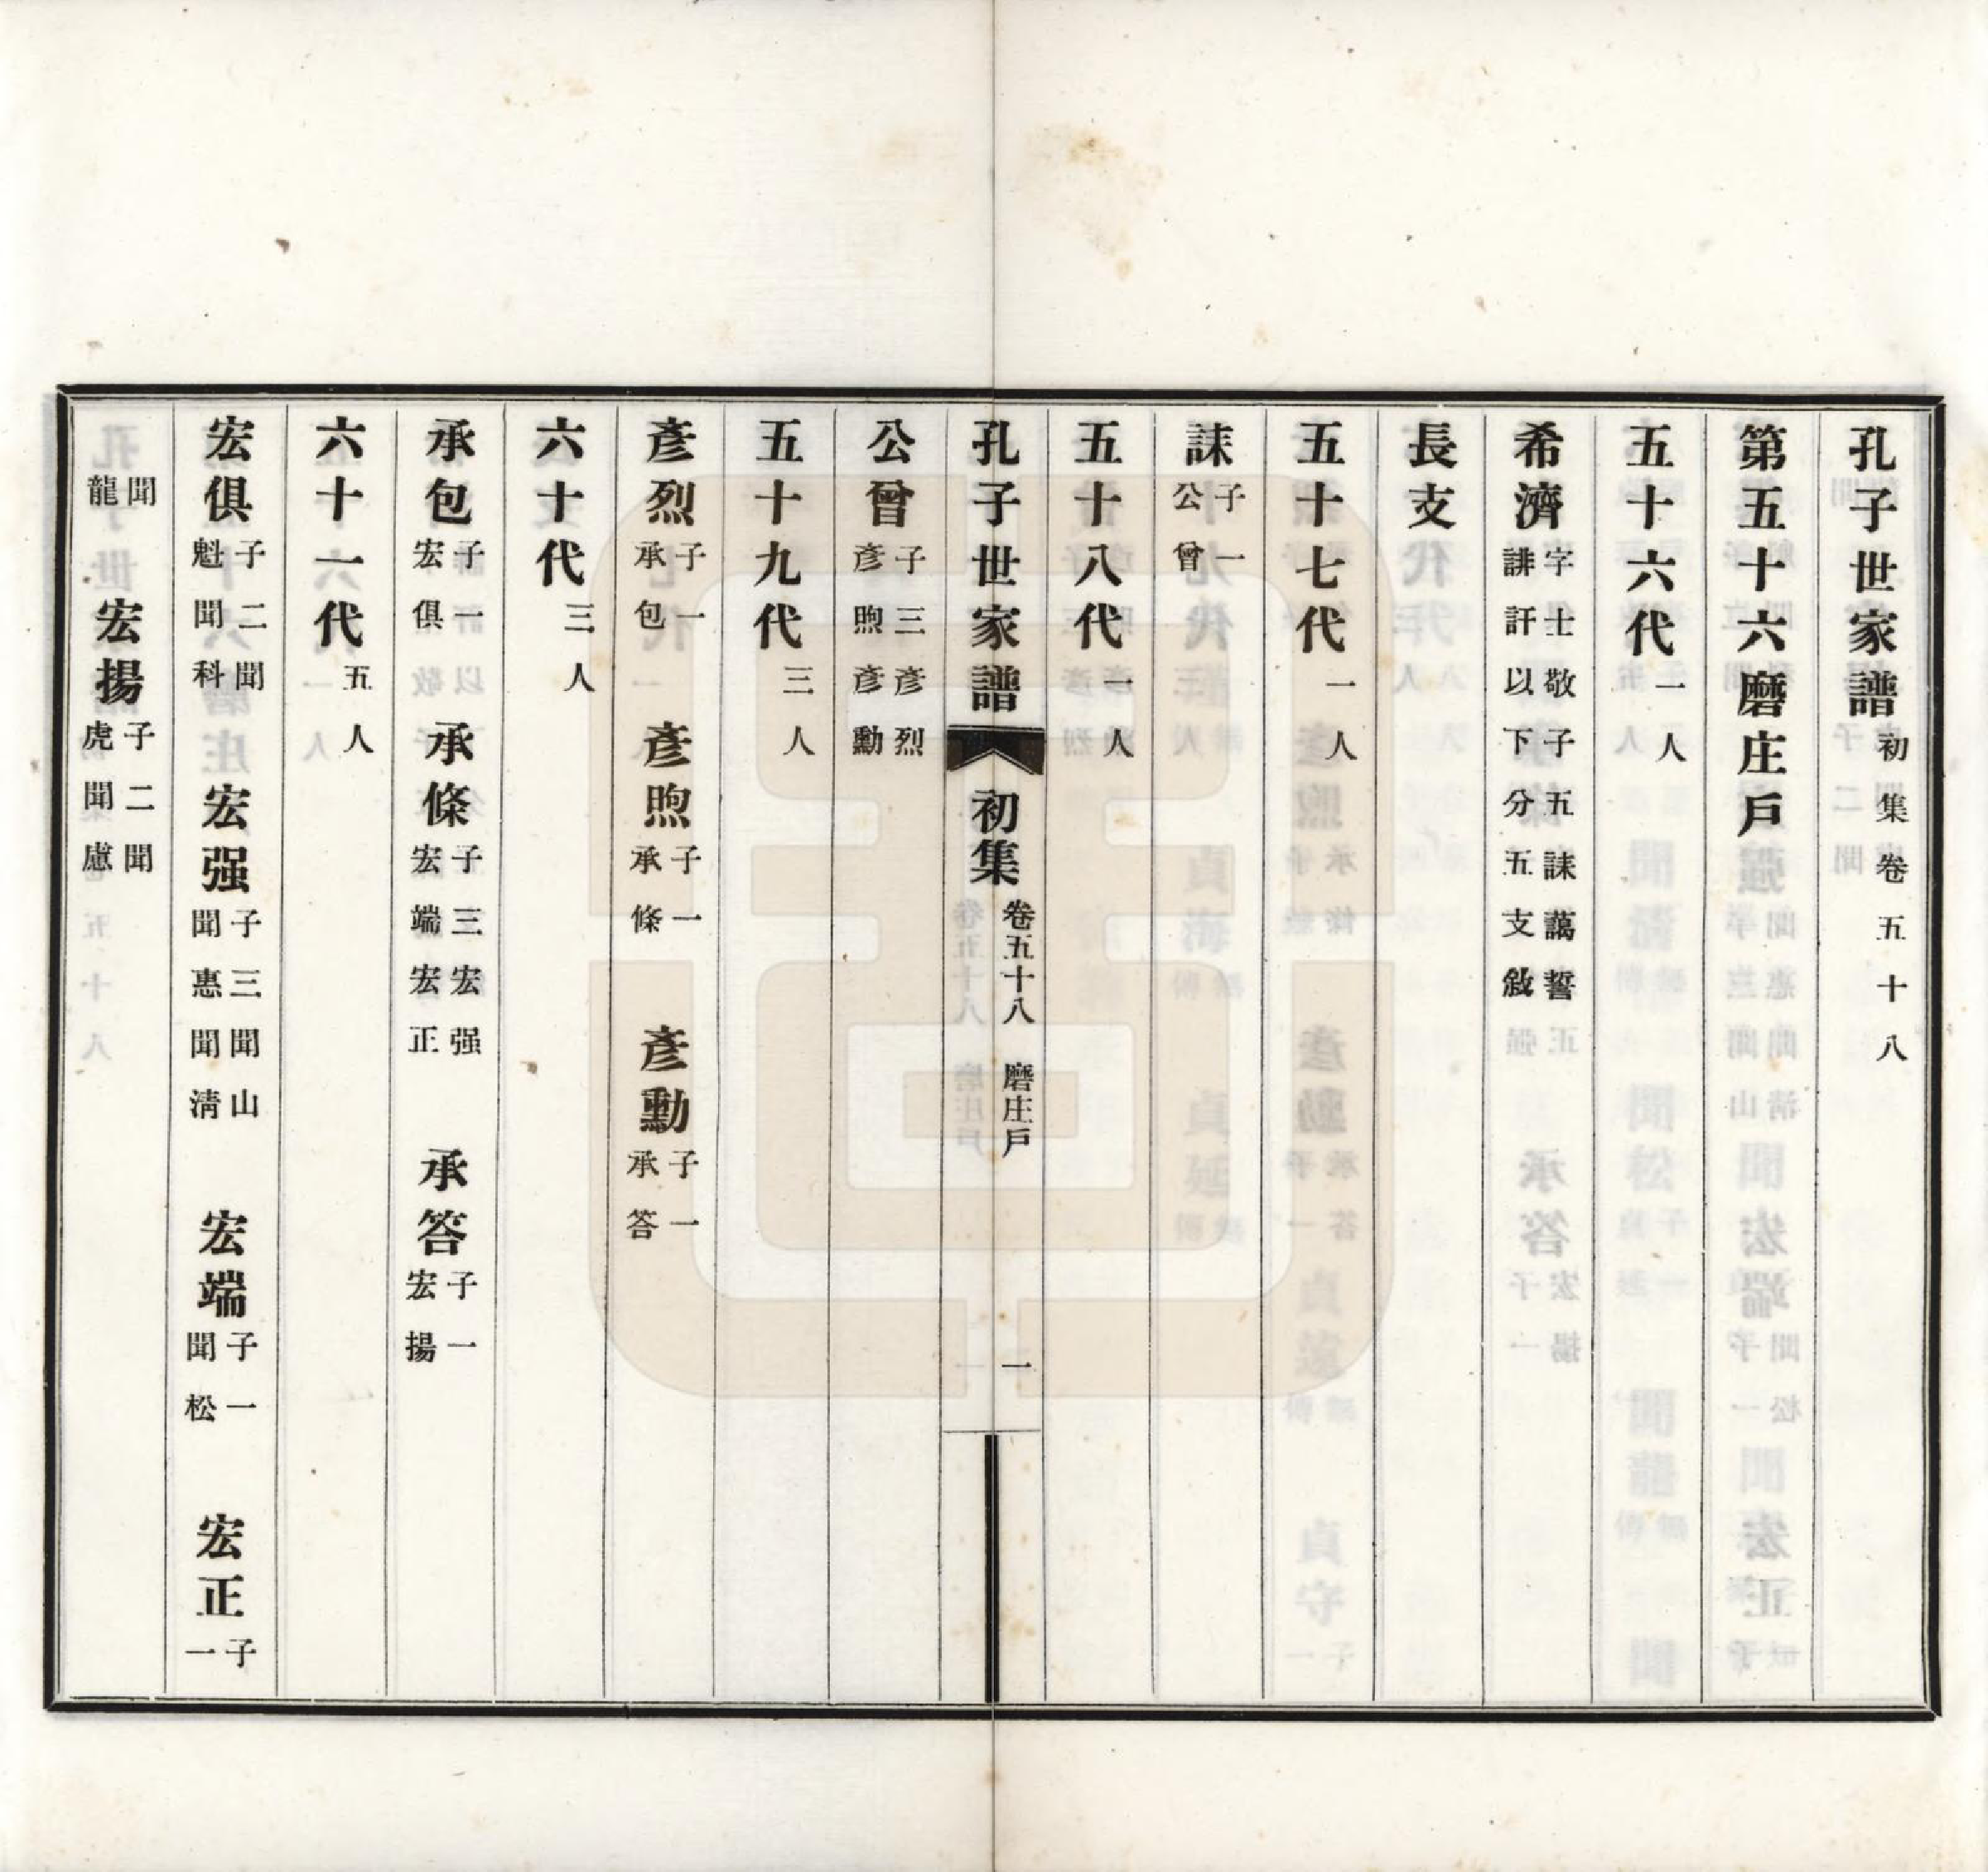 孔子世家譜初集卷五十八
第五十六磨庄戶
五十六代一人
希濟字士敬子五誄藹誓誹訐以下分五支敘
長支
五十七代一人
誄子一公曾
五十八代一人
孔子世家譜 初集 卷五十八 磨庄戶 一
公曾子三彥烈彥煦彥勳
五十九代三人
彥烈子一承包 彥煦子一承條 彥勳子一承答
六十代三人
承包子一宏俱 承條子三宏强宏端宏正 承答子一宏揚
六十一代五人
宏俱子二聞魁聞科 宏强子三聞山聞惠聞清 宏端子一聞松 宏正子一
聞龍 宏揚子二聞虎聞慮